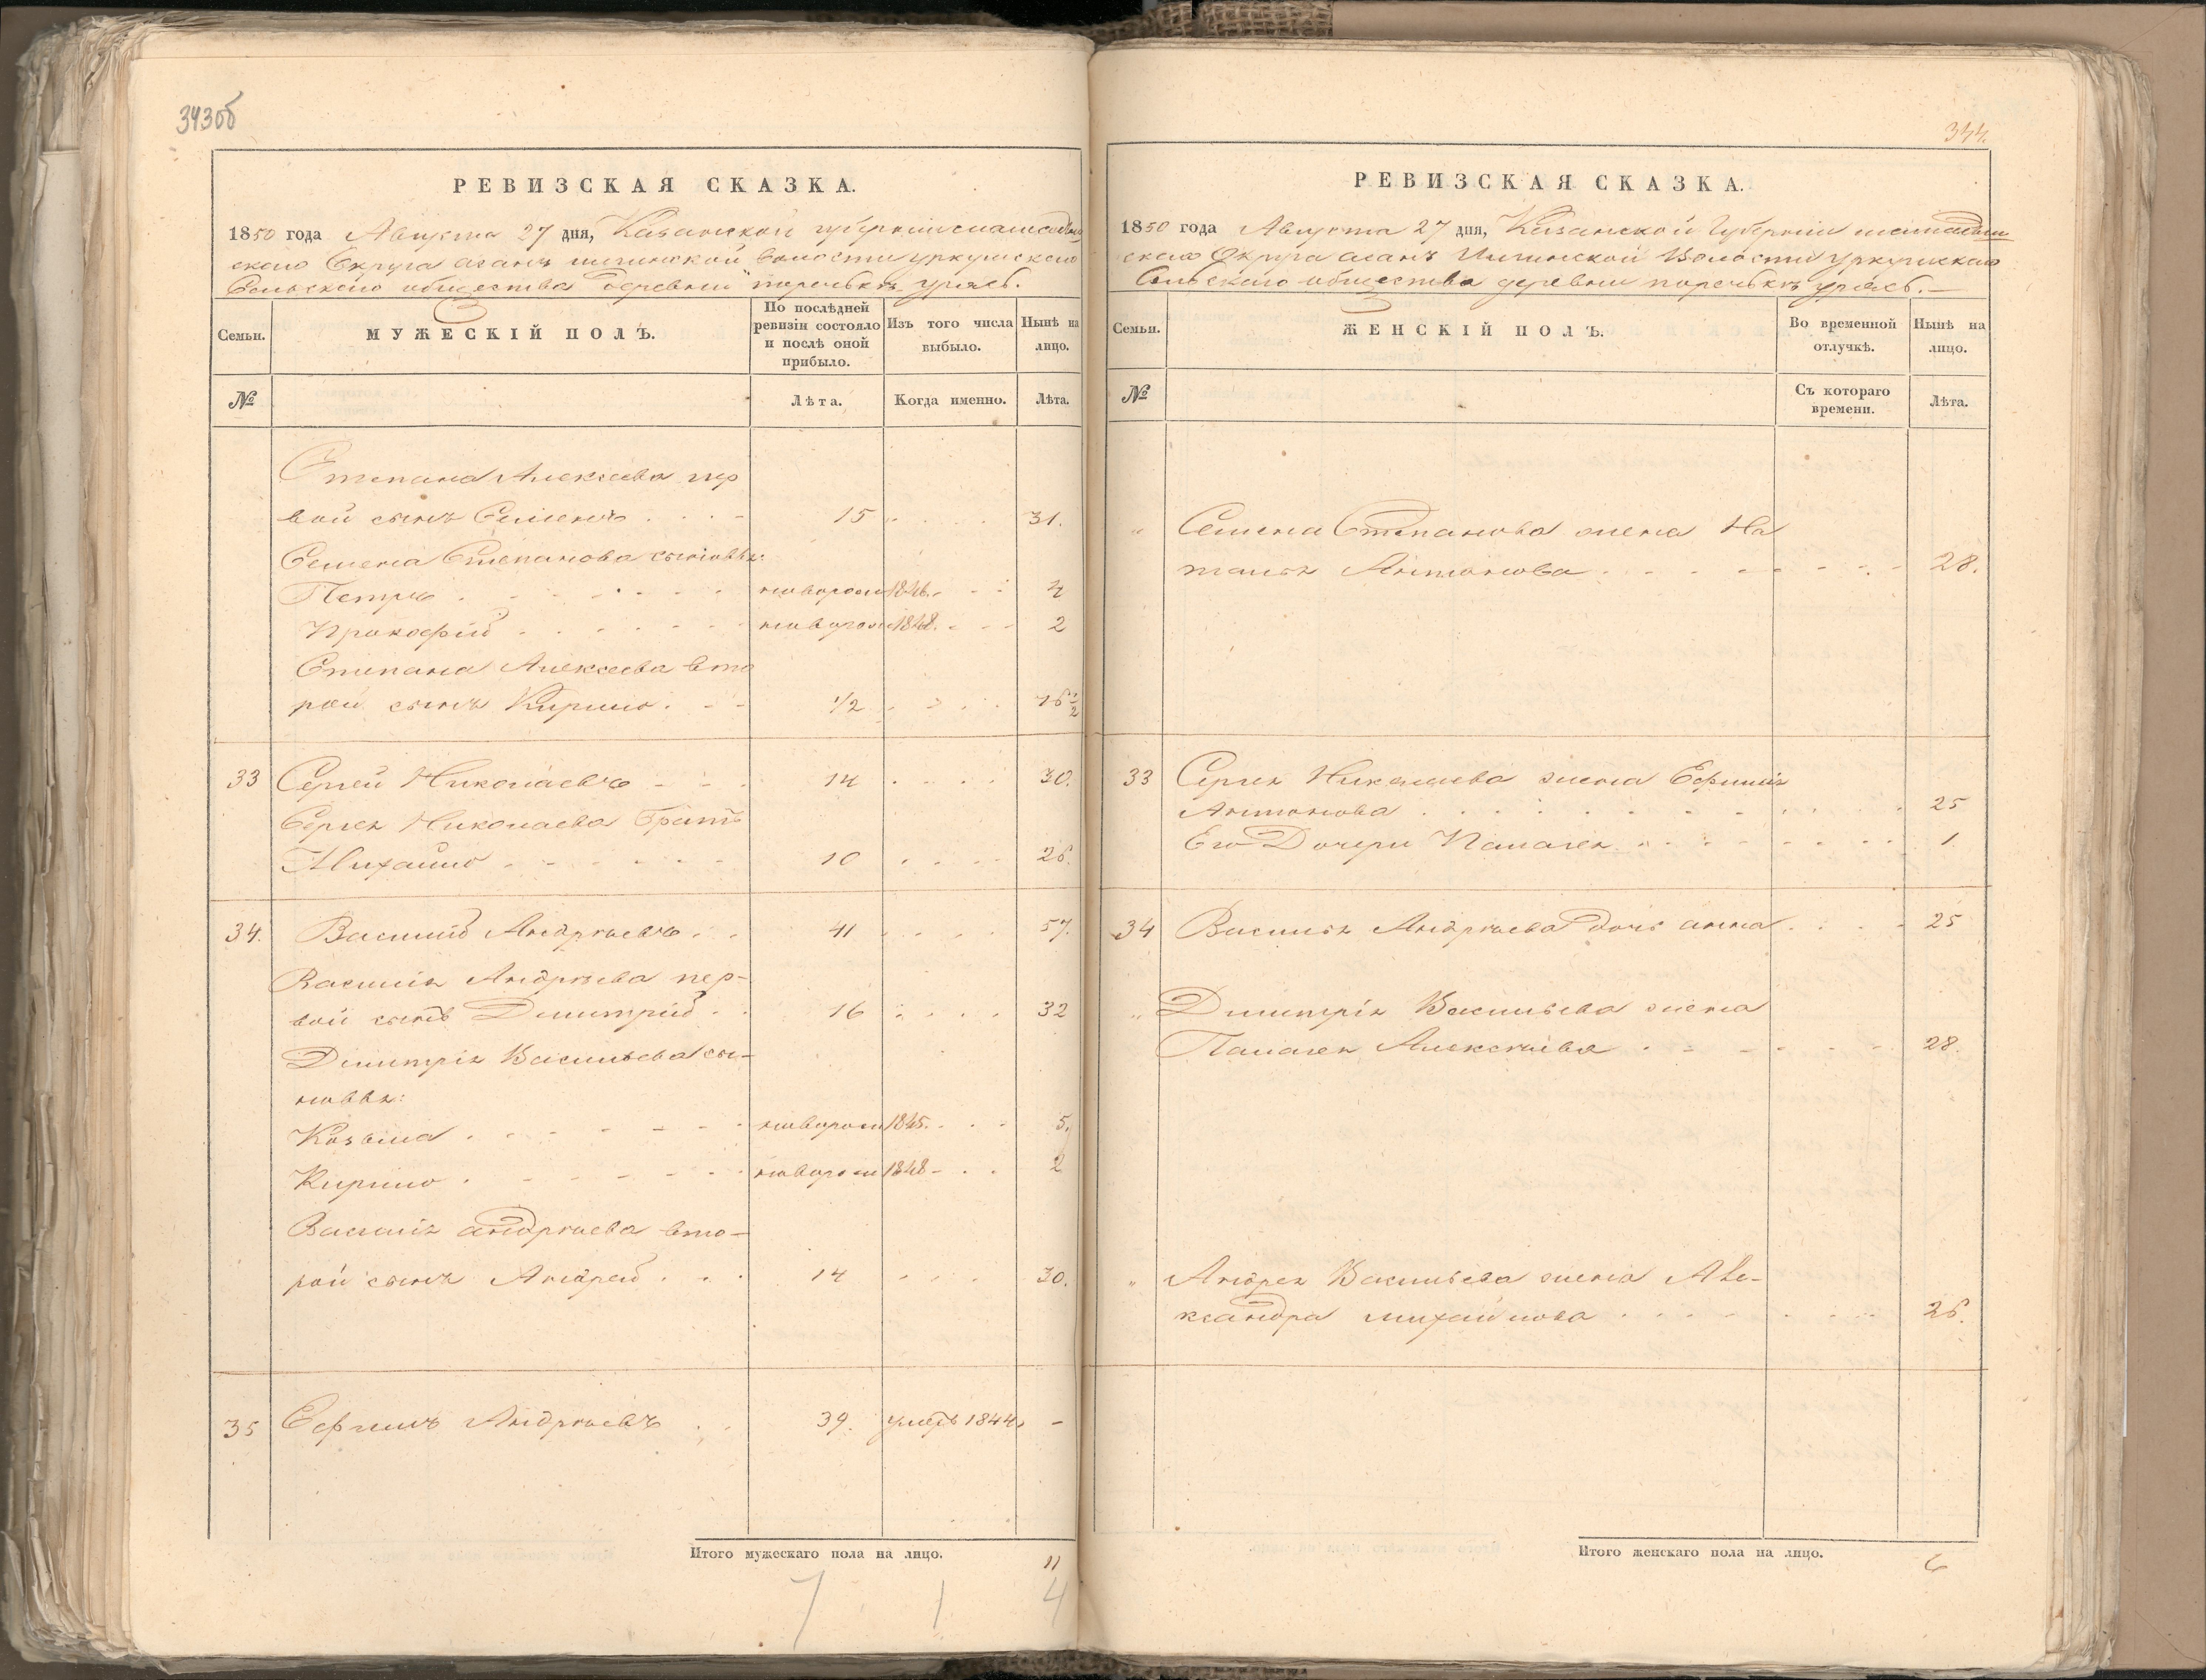 343об
РЕВИЗСКАЯ СКАЗКА.
1850 года Августа 27 дня, Казанской губернии мамадыш
скаго Округа асанъ илгинской волости уркушскаго
Сельскаго общества деревни поречькъ уряс.
Семьи.
МУЖЕСКІЙ ПОЛЪ.
По послѣдней ревизіи состояло и послѣ оной прибыло.
Изъ того числа выбыло.
Нынѣ на лицо.
№
Лѣта.
Когда именно.
Лѣта.
Степана Алексеева пер
вой сынъ Семенъ 15 31.
Семена Степанова сыновья:
Петръ новорож 1846. 4
Прокофій новорож 1848. 2
Степана Алексеева вто
рой сынъ Кирило 1/2 16 1/2
33 Сергей Николаевъ 14 30.
Сергея Николаева братъ
Михайло 10 26.
34. Василий Андреевъ 41 57.
Василія Андреева пер-
вой сынъ Димитрій 16 32
Димитрія Васильева сы-
новья:
Козьма новорож 1845. 5.
Кирило новорож 1848 2
Василія андреева вто-
рой сынъ Андрей 14 30.
35 Ефимъ Андреевъ 39. умеръ 1844. -
Итого мужескаго пола на лицо. 11
7 1 4
344.
РЕВИЗСКАЯ СКАЗКА.
1850 года Августа 27 дня, Казанской Губерніи мамадыш
скаго Округа асанъ Илгинской Волости уркушскаго
Сельскаго общества деревни поречькъ уряс.
Семьи.
ЖЕНСКІЙ ПОЛЪ.
Во временной отлучкѣ.
Нынѣ на лицо.
№
Съ котораго времени.
Лѣта.
" Семена Степанова жена На
талья Антонова 28.
33 Сергея Николаева жена Ефимія
Антонова 25
Его Дочери Палагея 1
34 Василья Андреева дочь анна 25
" Димитрія Васильева жена
Палагея Алексеева 28.
" Андрея Васильева жена Але-
ксандра михайлова 26.
Итого женскаго пола на лицо. 6